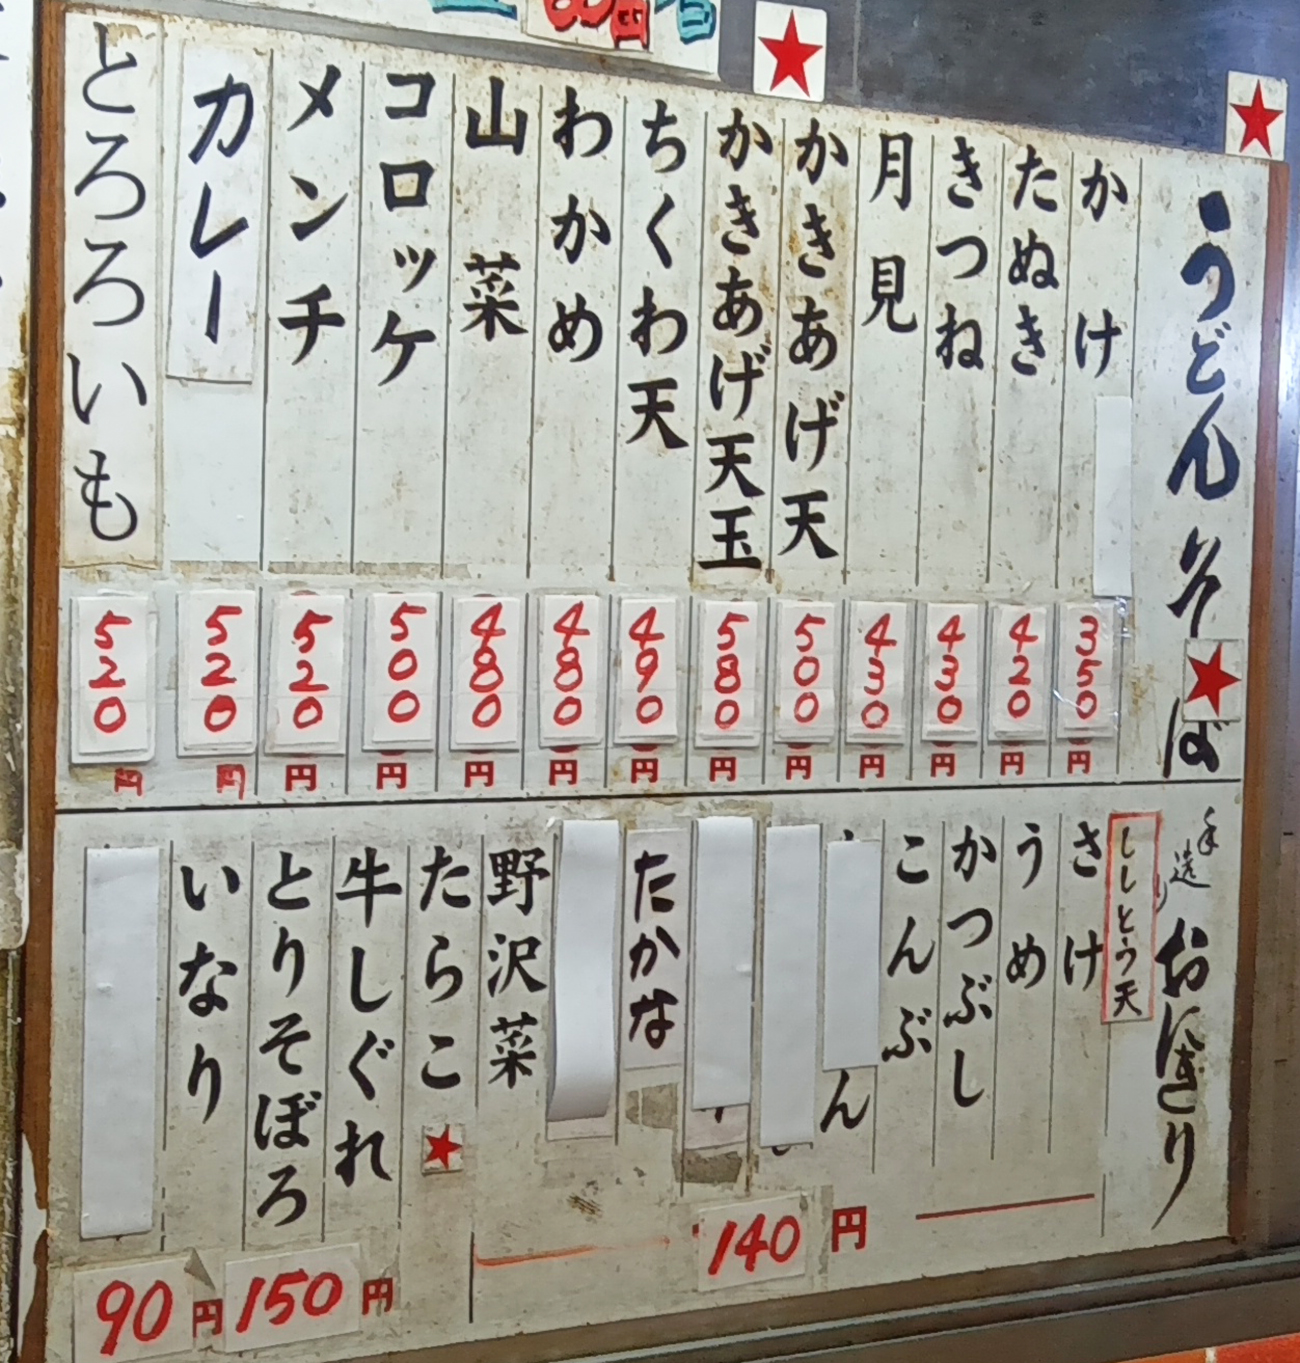 うどん そば
かけ
350円
たぬき
420円
きつね
430円
月見
430円
かきあげ天
500円
かきあげ天玉
580円
ちくわ天
490円
わかめ
480円
山菜
480円
コロッケ
500円
メンチ
520円
カレー
520円
とろろいも
520円
手造り おにぎり
ししとう天
さけ
うめ
かつぶし
こんぶ
ん
たかな
野沢菜
140円
たらこ
牛しぐれ
とりそぼろ
150円
いなり
90円